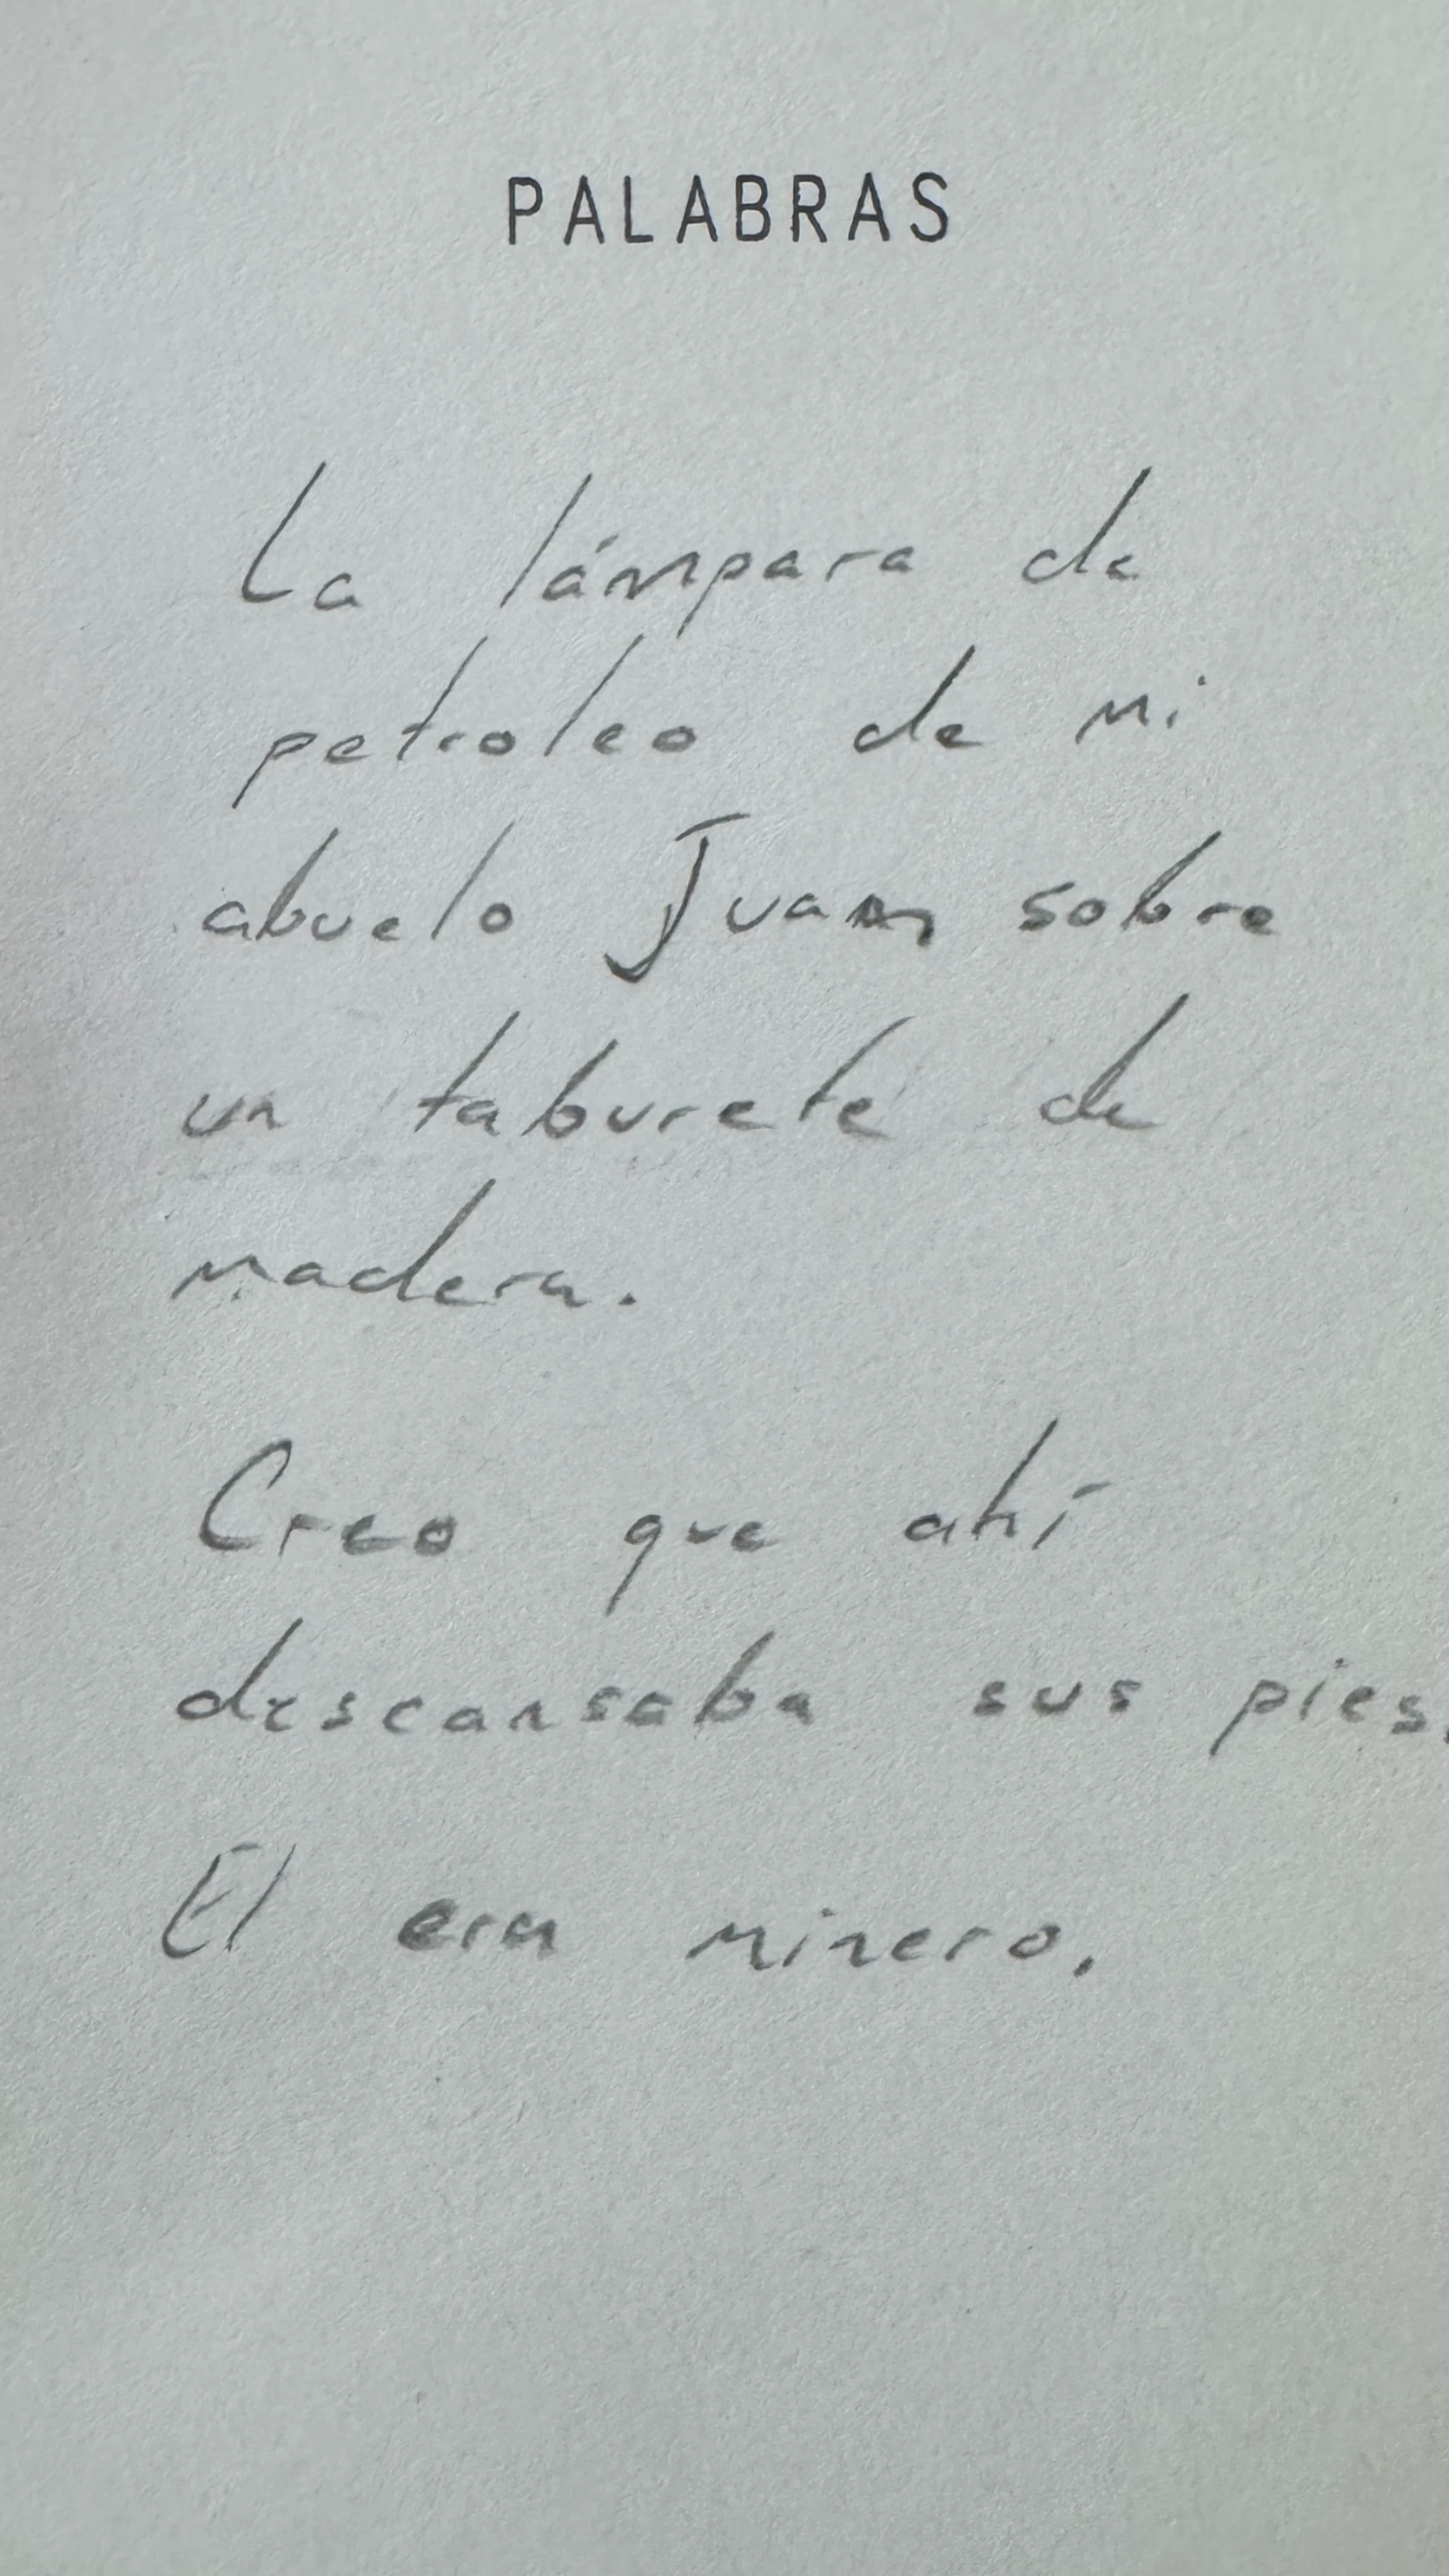 PALABRAS
La lámpara de
petroleo de mi
abuelo Juan sobre
un taburete de
madera.
Creo que ahí
descansaba sus pies.
El era minero.